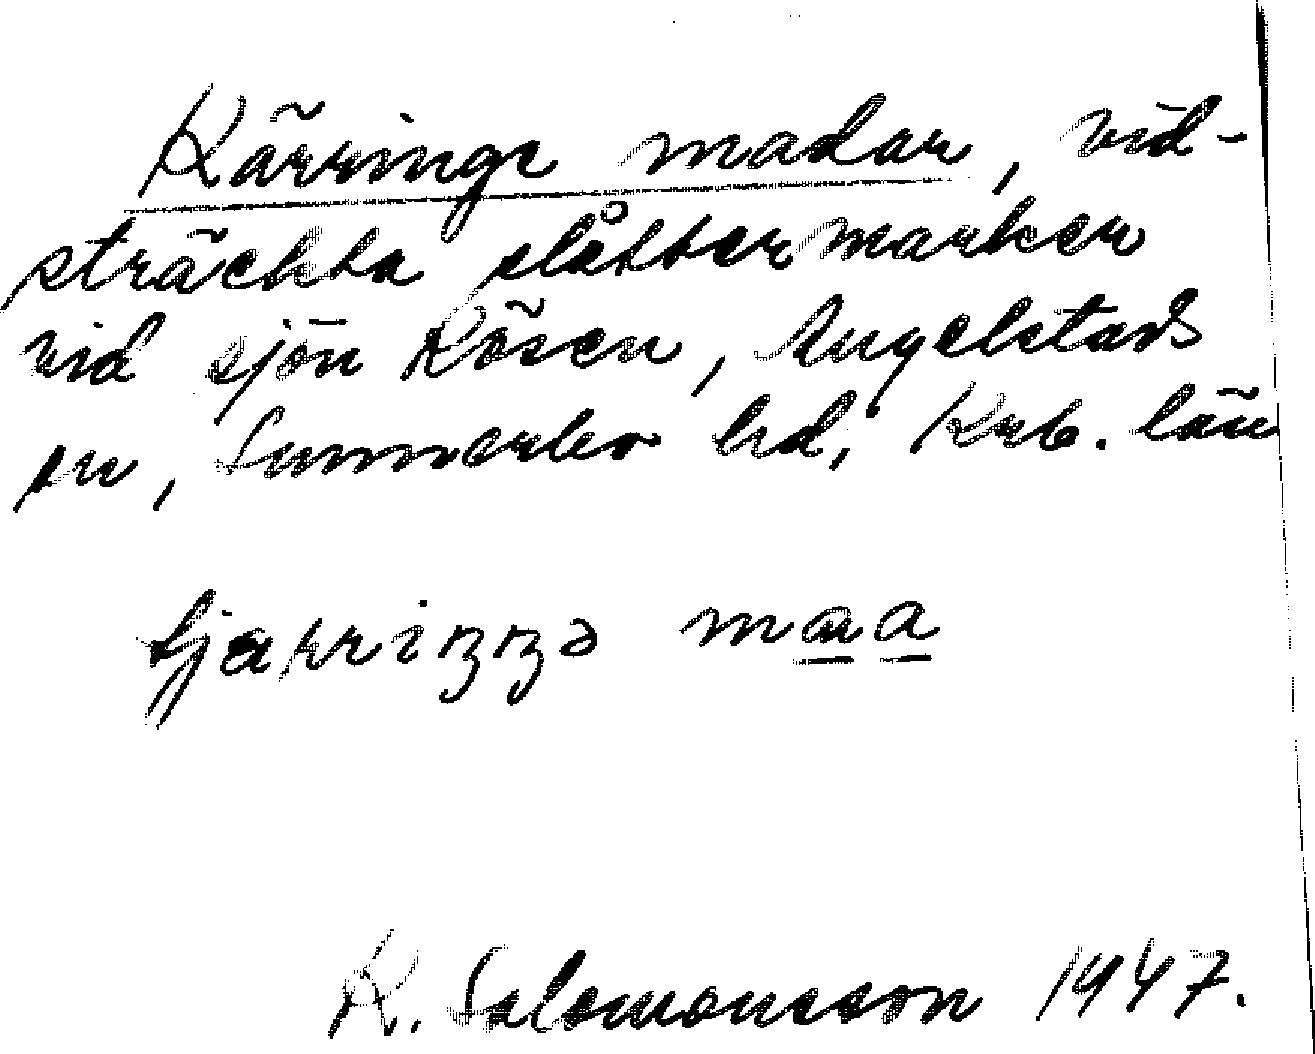 Kärringe madar, vid-
sträckta slåttermarker
vid sjön Kösen, Angelstads
sn, Sunnerbo hd, Krb. län
K. Salomonsson 1947.